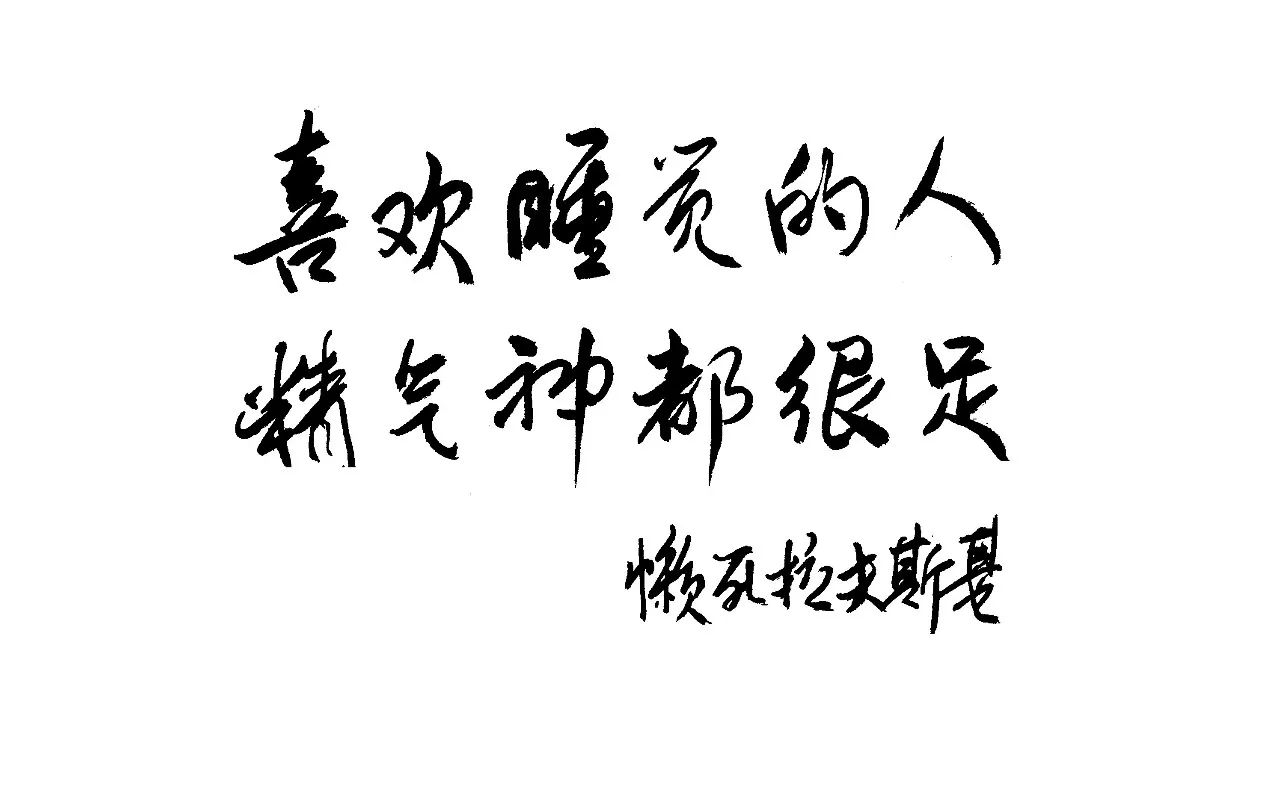 喜欢睡觉的人
精气神都很足
懒死拉夫斯基